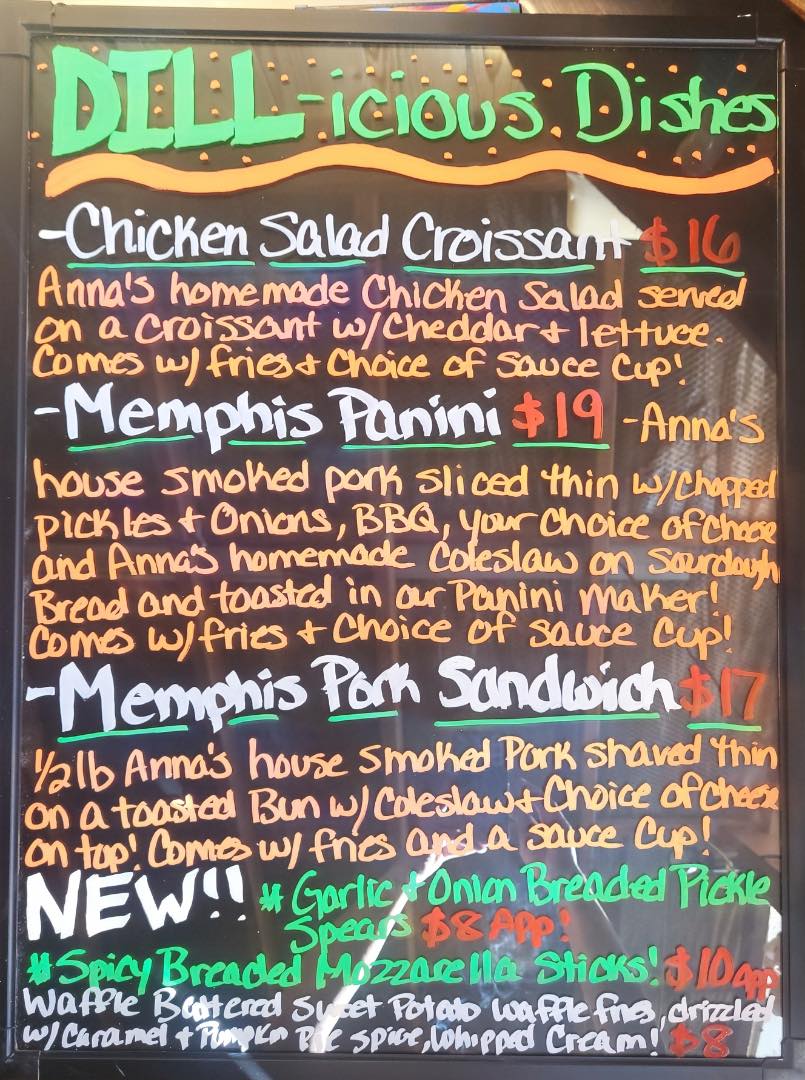 DILL-icious Dishes
-Chicken Salad Croissant $16
Anna's homemade Chicken Salad served
on a Croissant w/Cheddar + lettuce.
Comes w/ fries + Choice of sauce Cup!
-Memphis Panini $19 -Anna's
house smoked pork sliced thin w/Chopped
pickles + Onions, BBQ, your Choice of Cheese
and Anna's homemade Coleslaw on Sourdough
Bread and toasted in our Panini Maker!
Comes w/ fries + Choice of sauce Cup!
-Memphis Pork Sandwich $17
1/2 lb Anna's house smoked Pork shaved thin
on a toasted Bun w/ Coleslaw + Choice of Cheese
on top! Comes w/ fries and a sauce Cup!
NEW!! # Garlic + Onion Breaded Pickle
Spears $8 App!
# Spicy Breaded Mozzarella Sticks! $10 app
Waffle Battered Sweet Potato waffle fries, drizzled
w/ Caramel + Pumpkin Pie spice, Whipped Cream! $8